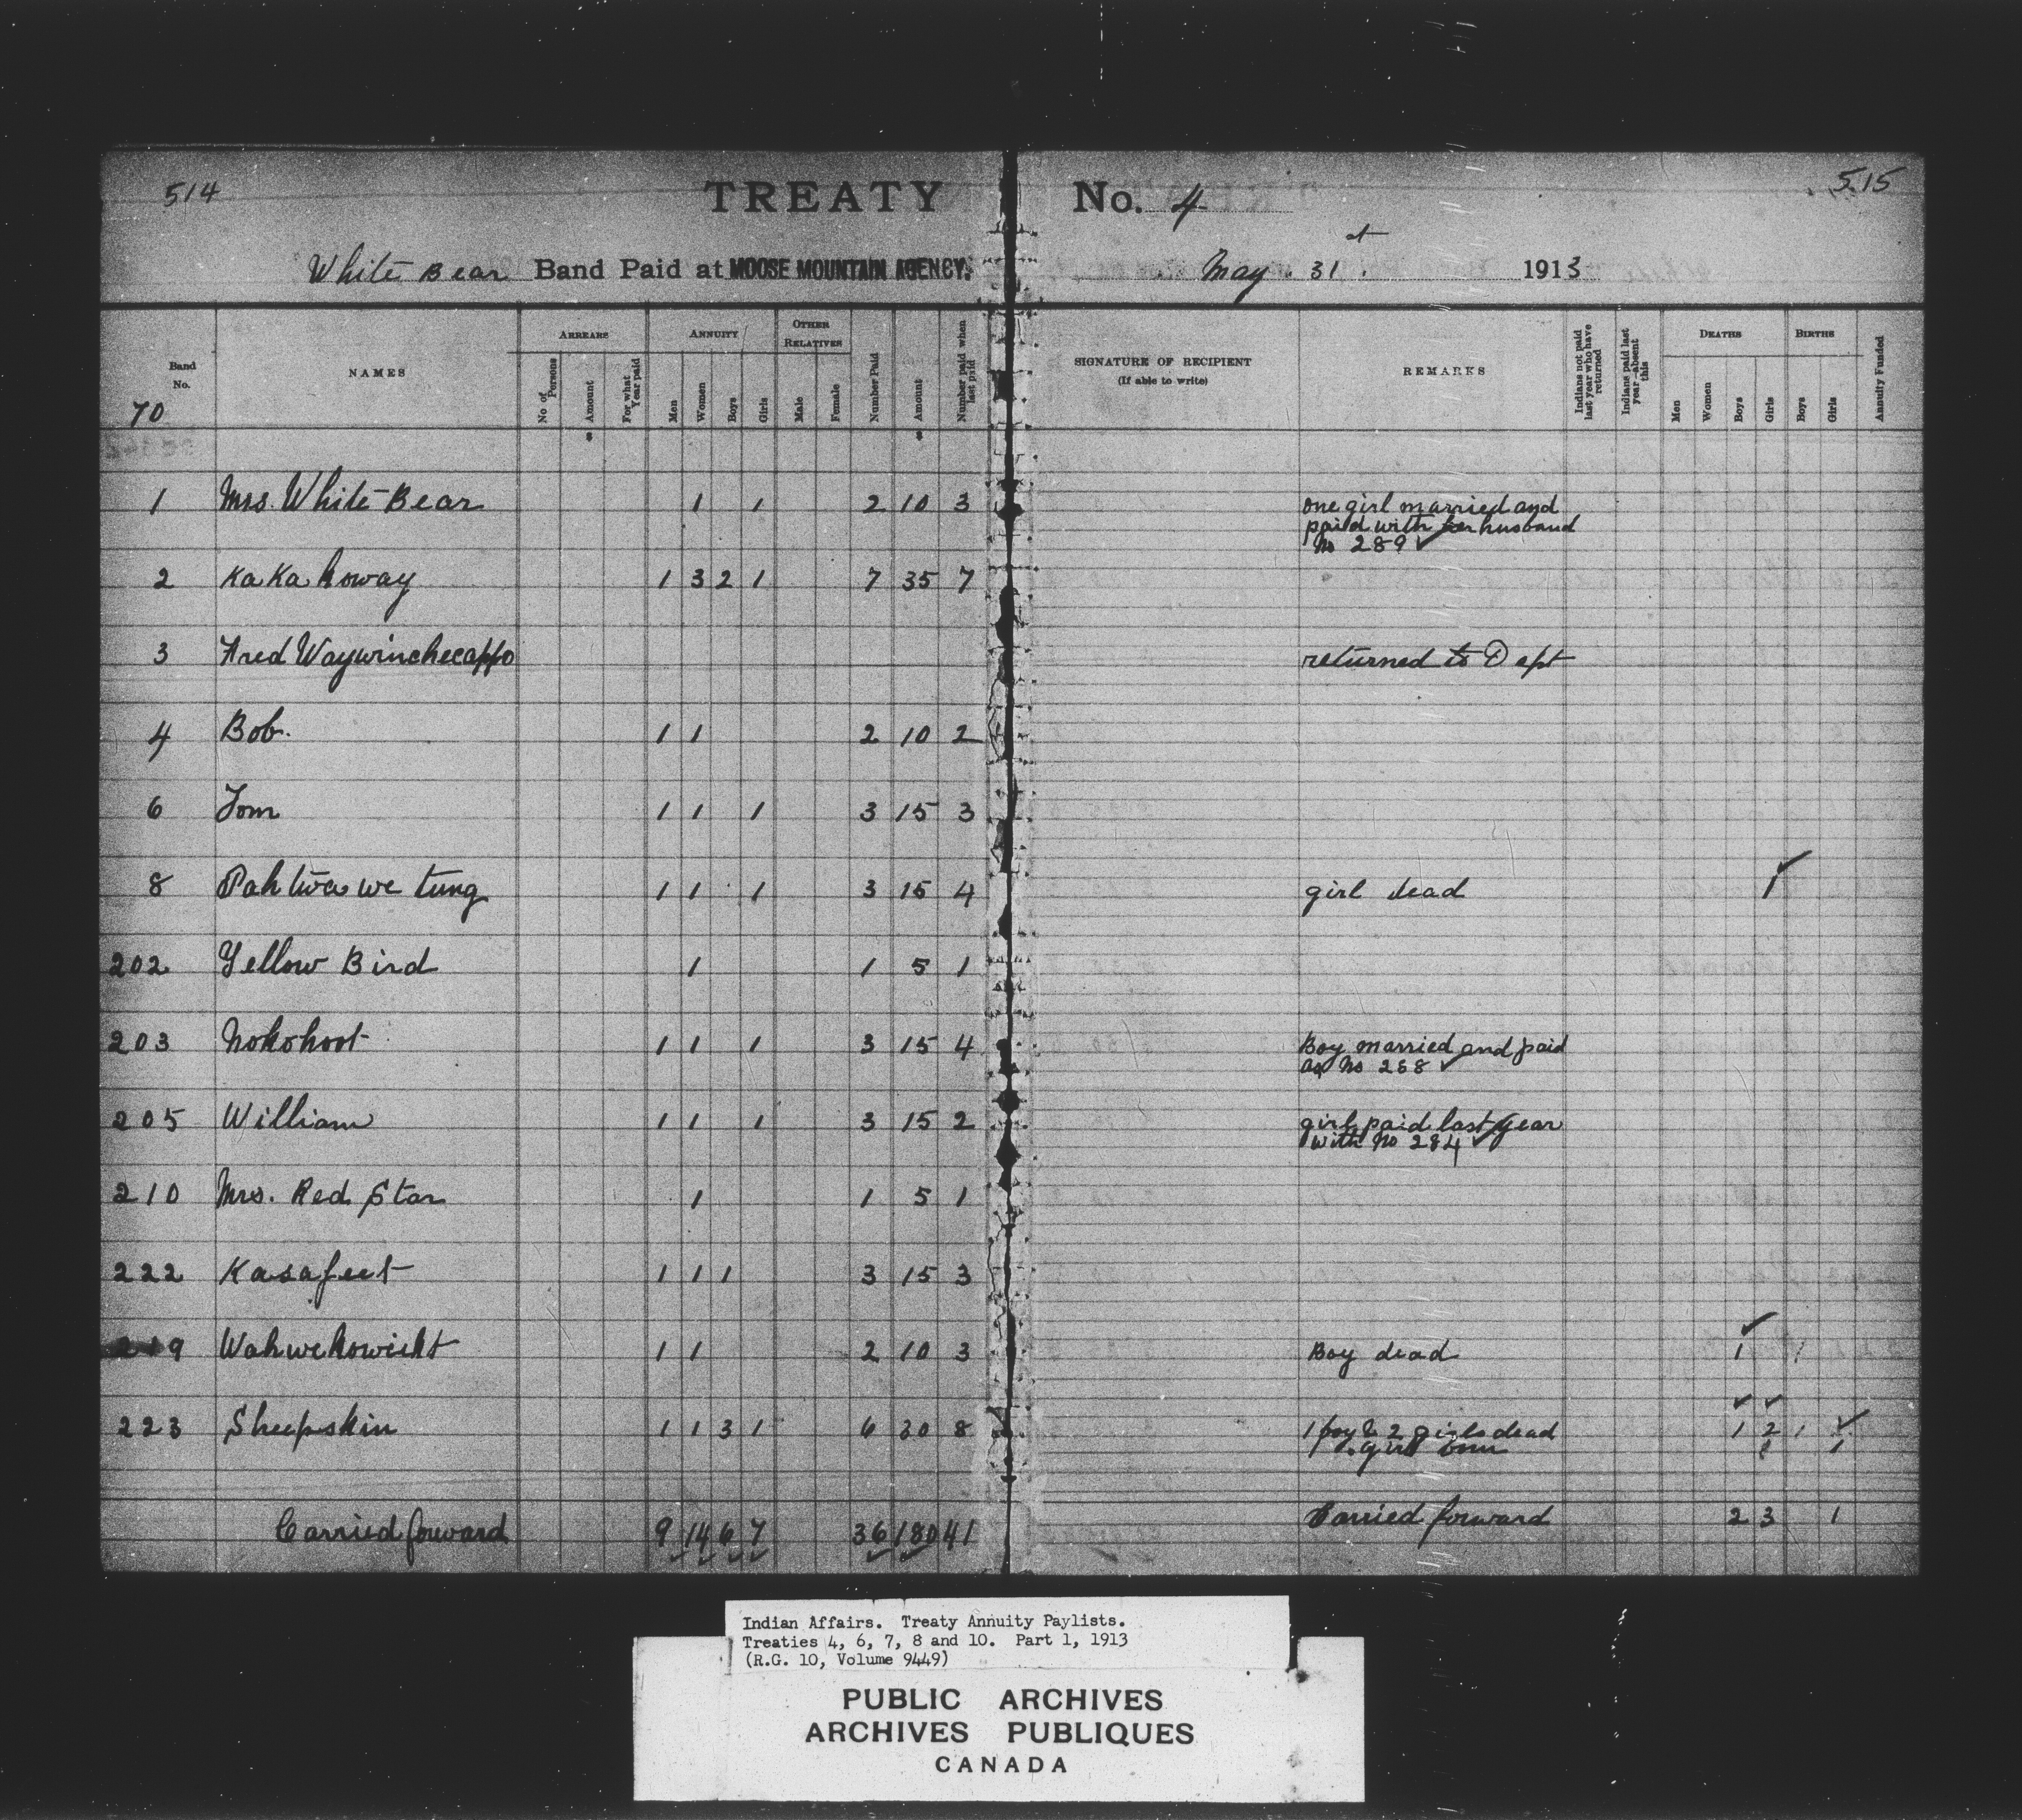 514
TREATY No. 4
515
White Bear Band Paid at MOOSE MOUNTAIN AGENCY. May 31st 1913
Band No. NAMES ARREARS ANNUITY OTHER RELATIVES Number Paid Amount Number paid when last paid SIGNATURE OF RECIPIENT (If able to write) REMARKS Indians not paid last year who have returned Indians paid last year absent this DEATHS BIRTHS Annuity Funded
No of Persons Amount For what Year paid Men Women Boys Girls Male Female Men Women Boys Girls Boys Girls
70
1 Mrs. White Bear 1 1 2 10 3 one girl married and
paid with her husband
No 289 ✓
2 Ka Ka koway 1 3 2 1 7 35 7
3 Fred Waywinchecappo returned to Dept
4 Bob. 1 1 2 10 2
6 Tom 1 1 1 3 15 3
8 Pah twa we tung 1 1 1 3 15 4 girl dead 1 ✓
202 Yellow Bird 1 1 5 1
203 Nokohoot 1 1 1 3 15 4 Boy married and paid
as No 288 ✓
205 William 1 1 1 3 15 2 girl paid last year
with No 284 ✓
210 Mrs. Red Star 1 1 5 1
222 Kasafeet 1 1 1 3 15 3
219 1 1 2 10 3 Boy dead 1 ✓ 1
223 Sheepskin 1 1 3 1 6 30 8 1 boy & 2 girls dead 1 2 1 ✓
girl born 1
Carried forward 9 14 6 7 36 180 41 Carried forward 2 3 1
Indian Affairs. Treaty Annuity Paylists.
Treaties 4, 6, 7, 8 and 10. Part 1, 1913
(R.G. 10, Volume 9449)
PUBLIC ARCHIVES
ARCHIVES PUBLIQUES
CANADA